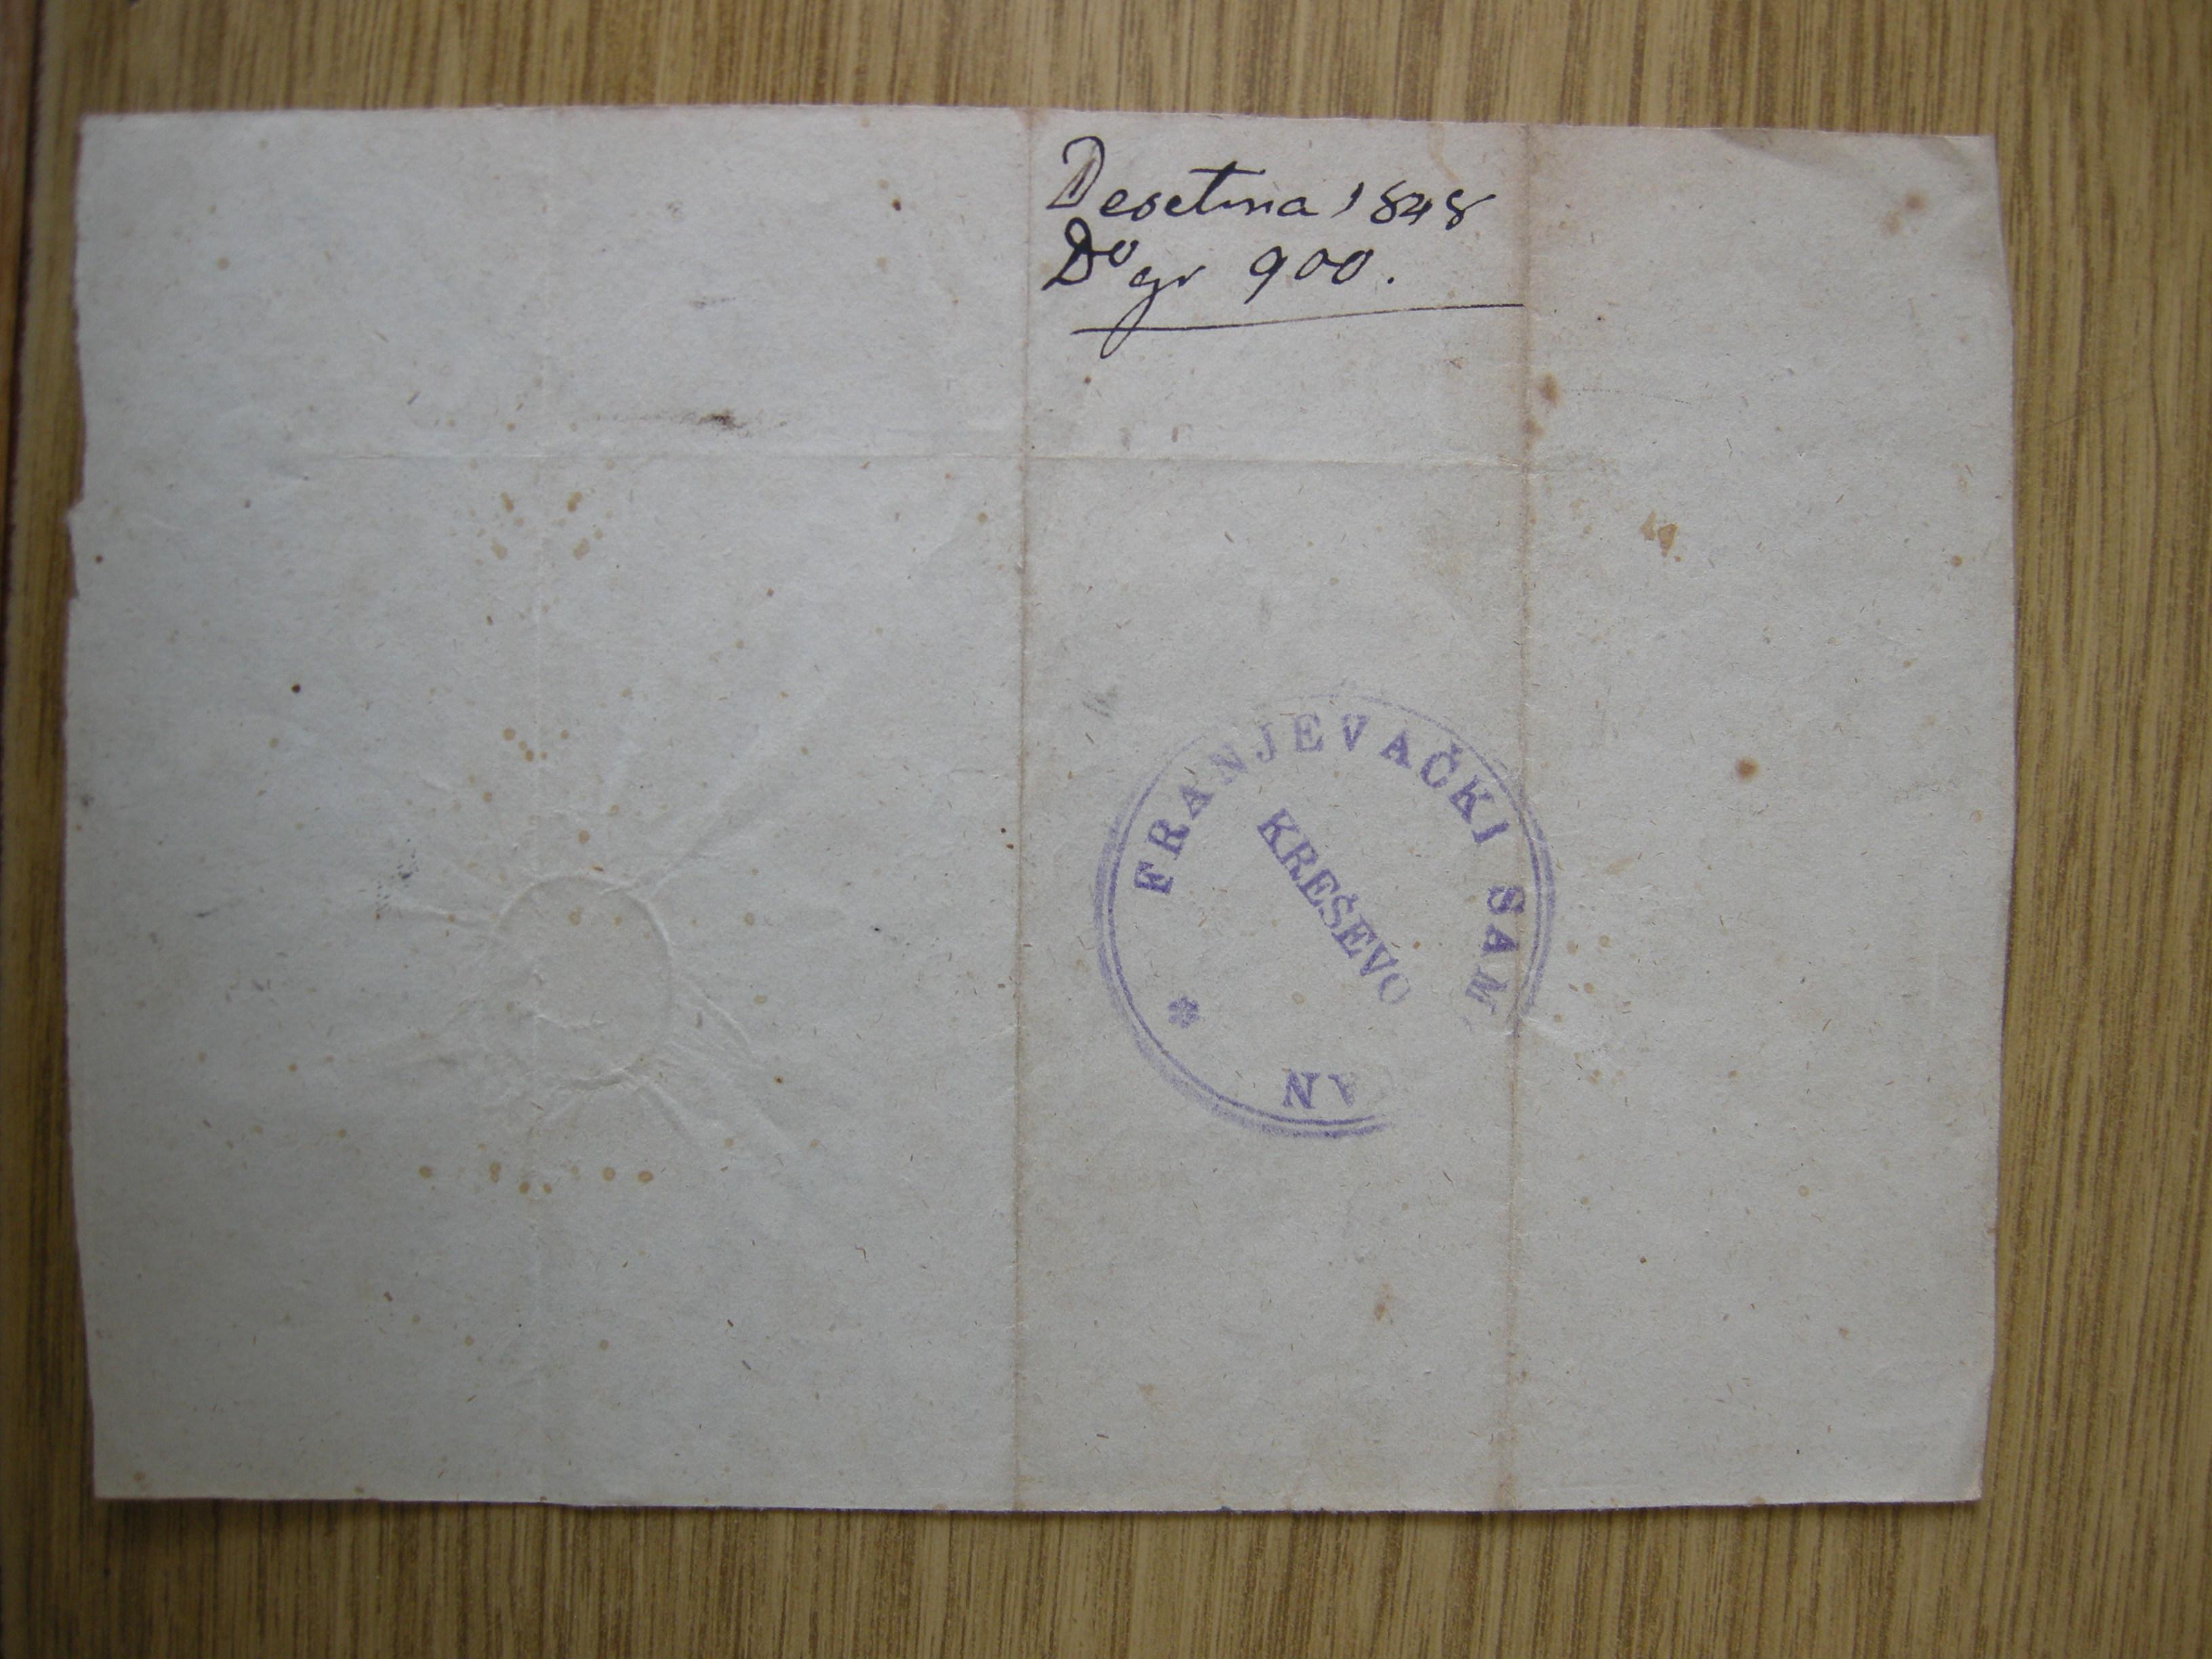 Desetina 1848
Do gr 900.
FRANJEVAČKI SAM
KREŠEVO
N
*